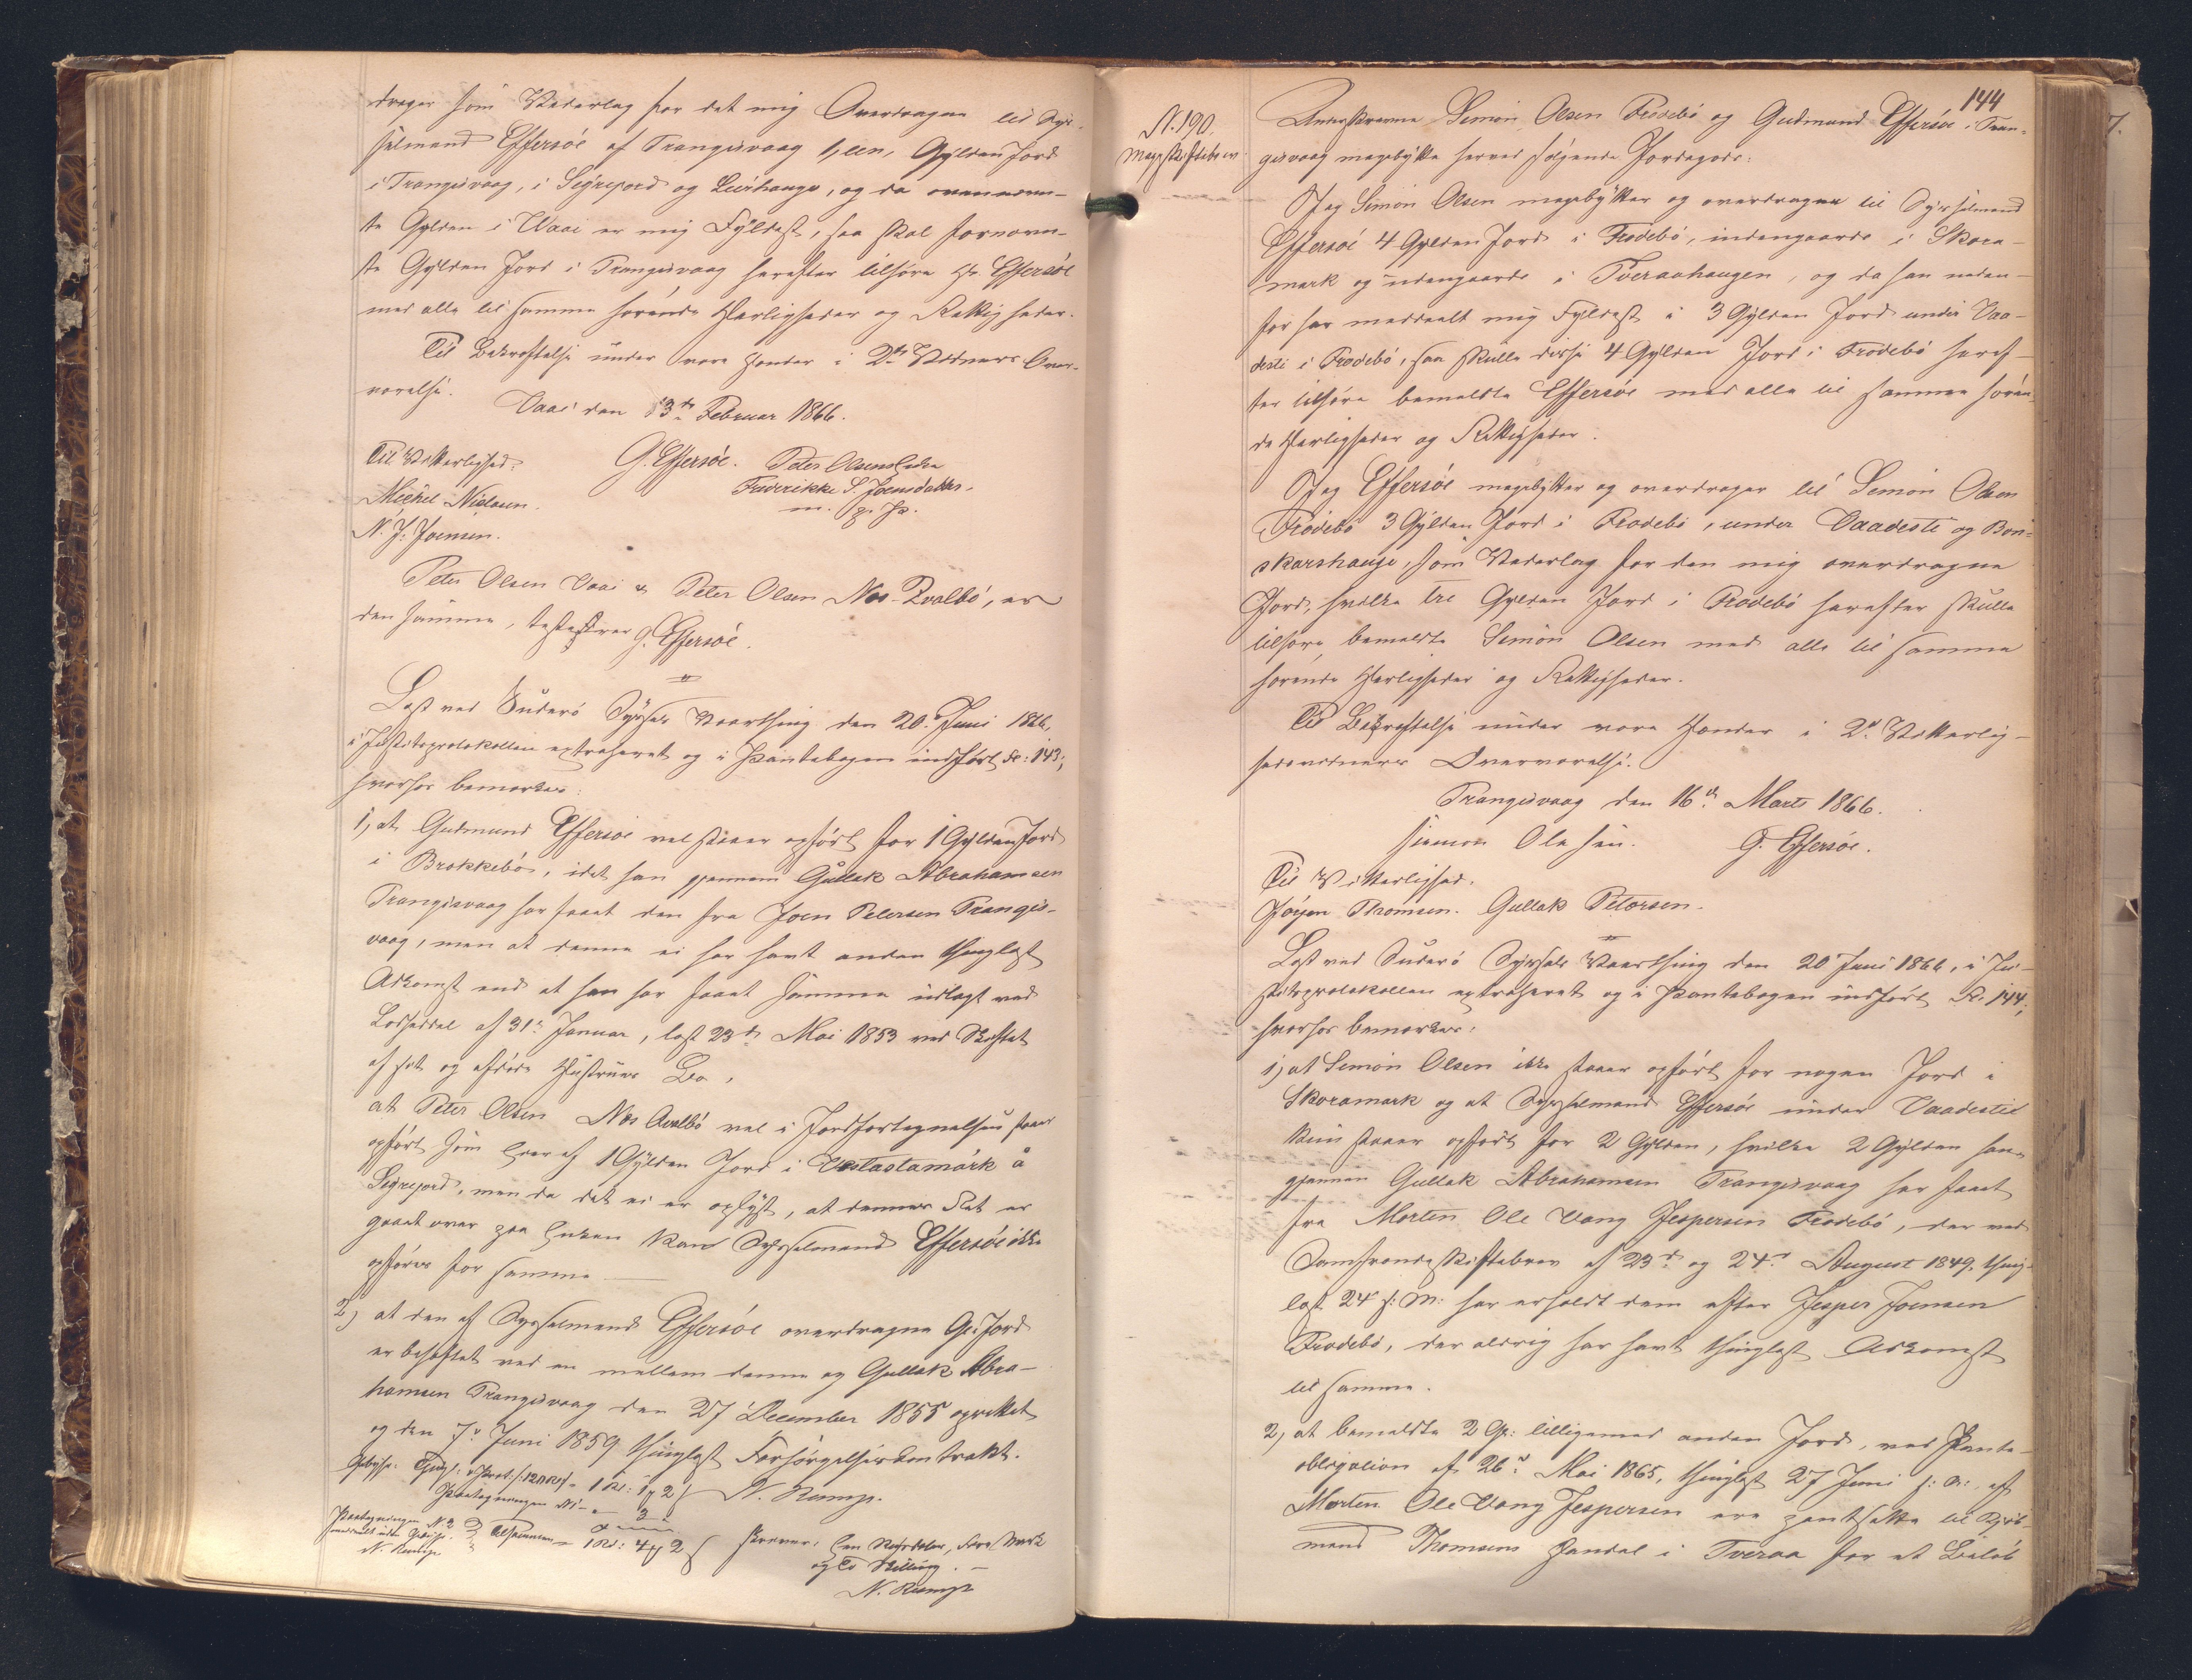 drager som Vederlag for det mig Overdragne til Sys-
selmand Effersöe af Trangisvaag 1, een, Gylden Jord
i Trangisvaag, i Segrejord og Leirhauge, og da ovennævn-
te Gylden i Waai er mig Fyldest, saa skal fornævn-
te Gylden Jord i Trangisvaag herefter tilhöre Hr. Effersöe
med alle til samme hörende Herligheder og Rettigheder.
Til Bekræftelse under vore Hænder i 2de Vidners Over-
værelse.
Vaai den 13de Februar 1866.
Til Vitterlighed: G. Effersöe. Peter Olsens Enke
Michel Nielsen. Frederikke S. Joensdatter.
N. J. Joensen. m. f. P.
Peter Olsen Vaai & Peter Olsen Næs-Qvalbö, er
den samme, testerer G. Effersöe.
Læst ved Suderö Syssels Vaarthing den 20. Juni 1866,
i Justitsprotokollen extraheret og i Pantebogen indfört Fo: 143;
hvorhos bemærkes:
1, at Gudmund Effersöe vel staaer opfört for 1 Gylden Jord
i Brekkebö, idet han gjennem Gullak Abrahamsen
Trangisvaag har faaet den fra Joen Petersen Trangis-
vaag, men at denne ei har havt anden thinglæst
Adkomst end at han har faaet samme udlagt ved
Lodseddel af 31te Januar, læst 23de Mai 1853 ved Skiftet
af sit og afdöde Hustrues Bo,
at Peter Olsen Næs Qvalbö vel i Jordfortegnelsen staaer
opfört som Eier af 1 Gylden Jord i Vestastamörk å
Segrejord, men da det ei er oplyst, at dennes Ret er
gaaet over paa Enken kan Sysselmand Effersöe ikke
opföres for samme.
2, at den af Sysselmand Effersöe overdragne Gl: Jord
er behæftet ved en mellem denne og Gullak Abra-
hamsen Trangisvaag den 27 December 1855 oprettet
og den 7de Juni 1859 thinglæst Forsörgelseskontrakt.
N. Rump.
Tilsammen = 1 Rd: 4 & 2 skriver: Een Rigsdaler, fire Mark
og to Skilling.
N. Rump
N. Rump
144
N. 190.
Mageskiftebrev
Underskrevne Simon Olsen Frodebö og Gudmund Effersöe i Tran-
gisvaag magebytte herved fölgende Jordegods:
Jeg Simon Olsen magebytter og overdrager til Sysselmand
Effersöe 4 Gylden Jord i Frodebö, indengaards i Skora-
mark og udengaards i Tveraahaugen, og da han neden-
for har meddeelt mig Fyldest i 3 Gylden Jord under Vaa-
desti i Frodebö, saa skulle disse 4 Gylden Jord i Frodebö heref-
ter tilhöre bemeldte Effersöe med alle til samme hören-
de Herligheder og Rettigheder.
Jeg Effersöe magebytter og overdrager til Simon Olsen
Frodebö 3 Gylden Jord i Frodebö, under Vaadesti og Bon-
skarshauge, som Vederlag for den mig overdragne
Jord, hvilke tre Gylden Jord i Frodebö herefter skulle
tilhöre bemeldte Simon Olsen med alle til samme
hörende Herligheder og Rettigheder.
Til Bekræftelse under vore Hænder i 2de Vitterlig-
hedsvidners Overværelse.
Trangisvaag den 16de Marts 1866.
Siemon Ole sen. G. Effersöe.
Til Vitterlighed.
Jörgen Thomsen. Gullak Petersen.
Læst ved Suderö Syssels Vaarthing den 20 Juni 1866, i Ju-
stitsprotokollen extraheret og i Pantebogen indfört Fo. 144;
hvorhos bemærkes:
1, at Simon Olsen ikke staaer opfört for nogen Jord i
Skoramark og at Sysselmand Effersöe under Vaadestie
kun staaer opfört for 2 Gylden, hvilke 2 Gylden han
gjennem Gullak Abrahamsen Trangisvaag har faaet
fra Morten Ole Vang Jespersen Frodebö, der ved
Samfrændeskiftebrev af 23de og 24de August 1849, thing-
læst 24 s: M: har erholdt dem efter Jesper Joensen
Frodebö, der aldrig har havt thinglæst Adkomst
til samme.
2, at bemeldte 2 Gl: tilligemed anden Jord, ved Pante-
obligation af 26de Mai 1865, thinglæst 27 Juni s: A:, af
Morten Ole Vang Jespersen ere pantsatte til Kjöb-
mand Thomsens Handel i Tveraa for et Belöb